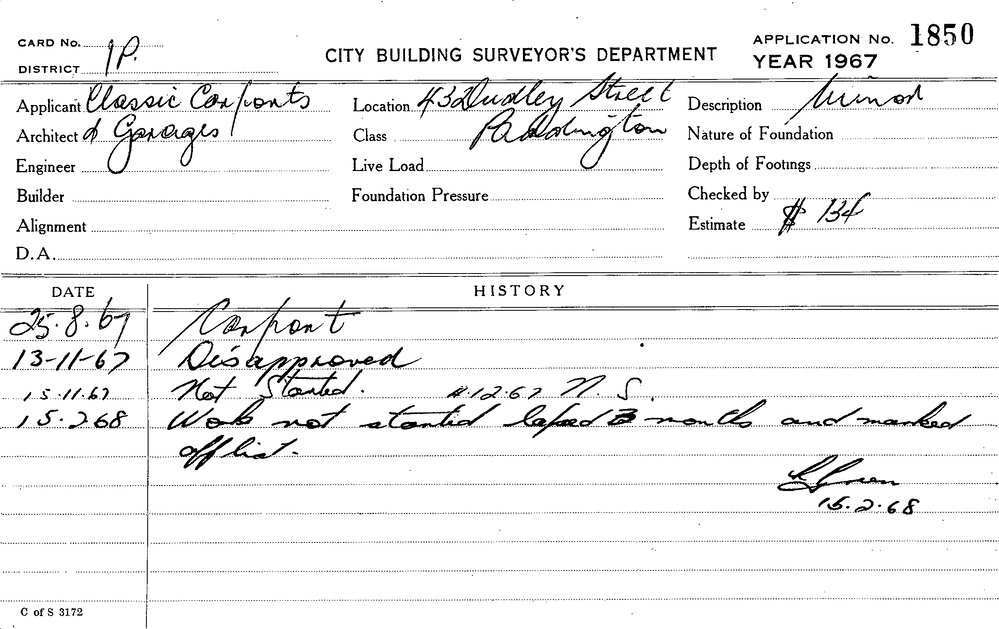 CARD No. 1P.
DISTRICT
CITY BUILDING SURVEYOR'S DEPARTMENT
APPLICATION No. 1850
YEAR 1967
Applicant Classic Carports
Architect & Garages
Engineer
Builder
Alignment
D.A.
Location 43 Dudley Street
Class Paddington
Live Load
Foundation Pressure
Description Minor
Nature of Foundation
Depth of Footings
Checked by
Estimate $ 134
DATE HISTORY
25.8.67 Carport
13-11-67 Disapproved
15.11.67 Not Started. 4.12.67 N.S.
15.2.68 Work not started lapsed 3 months and marked
off list.
15.2.68
C of S 3172